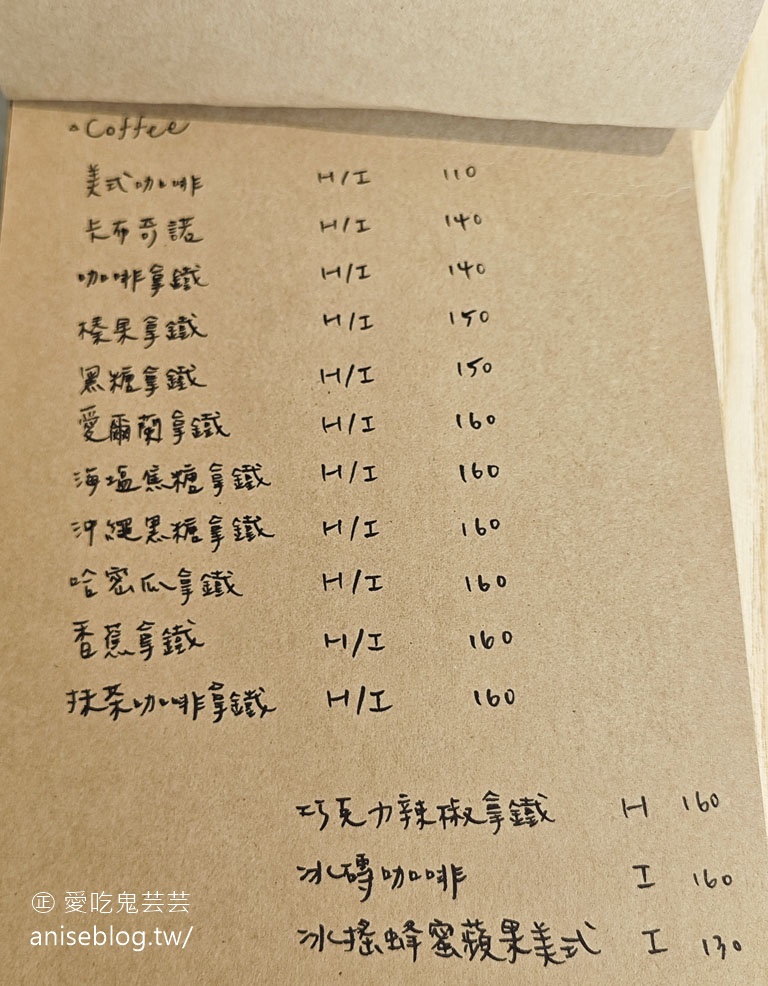 Coffee
美式咖啡 H/I 110
卡布奇諾 H/I 140
咖啡拿鐵 H/I 140
榛果拿鐵 H/I 150
黑糖拿鐵 H/I 150
愛爾蘭拿鐵 H/I 160
海塩焦糖拿鐵 H/I 160
沖繩黑糖拿鐵 H/I 160
哈密瓜拿鐵 H/I 160
香蕉拿鐵 H/I 160
抹茶咖啡拿鐵 H/I 160
巧克力辣椒拿鐵 H 160
冰磚咖啡 I 160
冰搖蜂蜜蘋果美式 I 130
㊣ 愛吃鬼芸芸
aniseblog.tw/